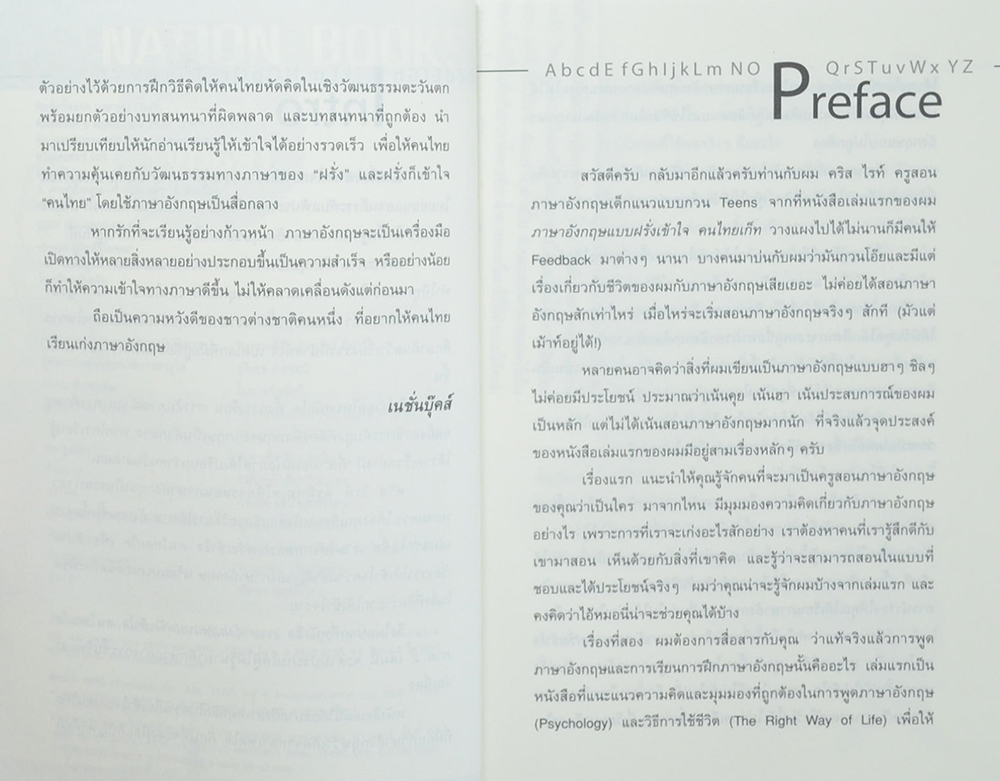 ตัวอย่างไว้ด้วยการฝึกวิธีคิดให้คนไทยหัดคิดในเชิงวัฒนธรรมตะวันตก
พร้อมยกตัวอย่างบทสนทนาที่ผิดพลาด และบทสนทนาที่ถูกต้อง นำ
มาเปรียบเทียบให้นักอ่านเรียนรู้ให้เข้าใจได้อย่างรวดเร็ว เพื่อให้คนไทย
ทำความคุ้นเคยกับวัฒนธรรมทางภาษาของ “ฝรั่ง” และฝรั่งก็เข้าใจ
“คนไทย” โดยใช้ภาษาอังกฤษเป็นสื่อกลาง
หากรักที่จะเรียนรู้อย่างก้าวหน้า ภาษาอังกฤษจะเป็นเครื่องมือ
เปิดทางให้หลายสิ่งหลายอย่างประกอบขึ้นเป็นความสำเร็จ หรืออย่างน้อย
ก็ทำให้ความเข้าใจทางภาษาดีขึ้น ไม่ให้คลาดเคลื่อนดังแต่ก่อนมา
ถือเป็นความหวังดีของชาวต่างชาติคนหนึ่ง ที่อยากให้คนไทย
เรียนเก่งภาษาอังกฤษ
เนชั่นบุ๊คส์
AbcdE fGhIjkLm NO QrSTuvWx YZ
Preface
สวัสดีครับ กลับมาอีกแล้วครับท่านกับผม คริส ไรท์ ครูสอน
ภาษาอังกฤษเด็กแนวแบบกวน Teens จากที่หนังสือเล่มแรกของผม
ภาษาอังกฤษแบบฝรั่งเข้าใจ คนไทยเก็ท วางแผงไปได้ไม่นานก็มีคนให้
Feedback มาต่างๆ นานา บางคนมาบ่นกับผมว่ามันกวนโอ๊ยและมีแต่
เรื่องเกี่ยวกับชีวิตของผมกับภาษาอังกฤษเสียเยอะ ไม่ค่อยได้สอนภาษา
อังกฤษสักเท่าไหร่ เมื่อไหร่จะเริ่มสอนภาษาอังกฤษจริงๆ สักที (มัวแต่
เม้าท์อยู่ได้!)
หลายคนอาจคิดว่าสิ่งที่ผมเขียนเป็นภาษาอังกฤษแบบฮาๆ ชิลๆ
ไม่ค่อยมีประโยชน์ ประมาณว่าเน้นคุย เน้นฮา เน้นประสบการณ์ของผม
เป็นหลัก แต่ไม่ได้เน้นสอนภาษาอังกฤษมากนัก ที่จริงแล้วจุดประสงค์
ของหนังสือเล่มแรกของผมมีอยู่สามเรื่องหลักๆ ครับ
เรื่องแรก แนะนำให้คุณรู้จักคนที่จะมาเป็นครูสอนภาษาอังกฤษ
ของคุณว่าเป็นใคร มาจากไหน มีมุมมองความคิดเกี่ยวกับภาษาอังกฤษ
อย่างไร เพราะการที่เราจะเก่งอะไรสักอย่าง เราต้องหาคนที่เรารู้สึกดีกับ
เขามาสอน เห็นด้วยกับสิ่งที่เขาคิด และรู้ว่าจะสามารถสอนในแบบที่
ชอบและได้ประโยชน์จริงๆ ผมว่าคุณน่าจะรู้จักผมบ้างจากเล่มแรก และ
คงคิดว่าไอ้หมอนี่น่าจะช่วยคุณได้บ้าง
เรื่องที่สอง ผมต้องการสื่อสารกับคุณ ว่าแท้จริงแล้วการพูด
ภาษาอังกฤษและการเรียนการฝึกภาษาอังกฤษนั้นคืออะไร เล่มแรกเป็น
หนังสือที่แนะแนวความคิดและมุมมองที่ถูกต้องในการพูดภาษาอังกฤษ
(Psychology) และวิธีการใช้ชีวิต (The Right Way of Life) เพื่อให้